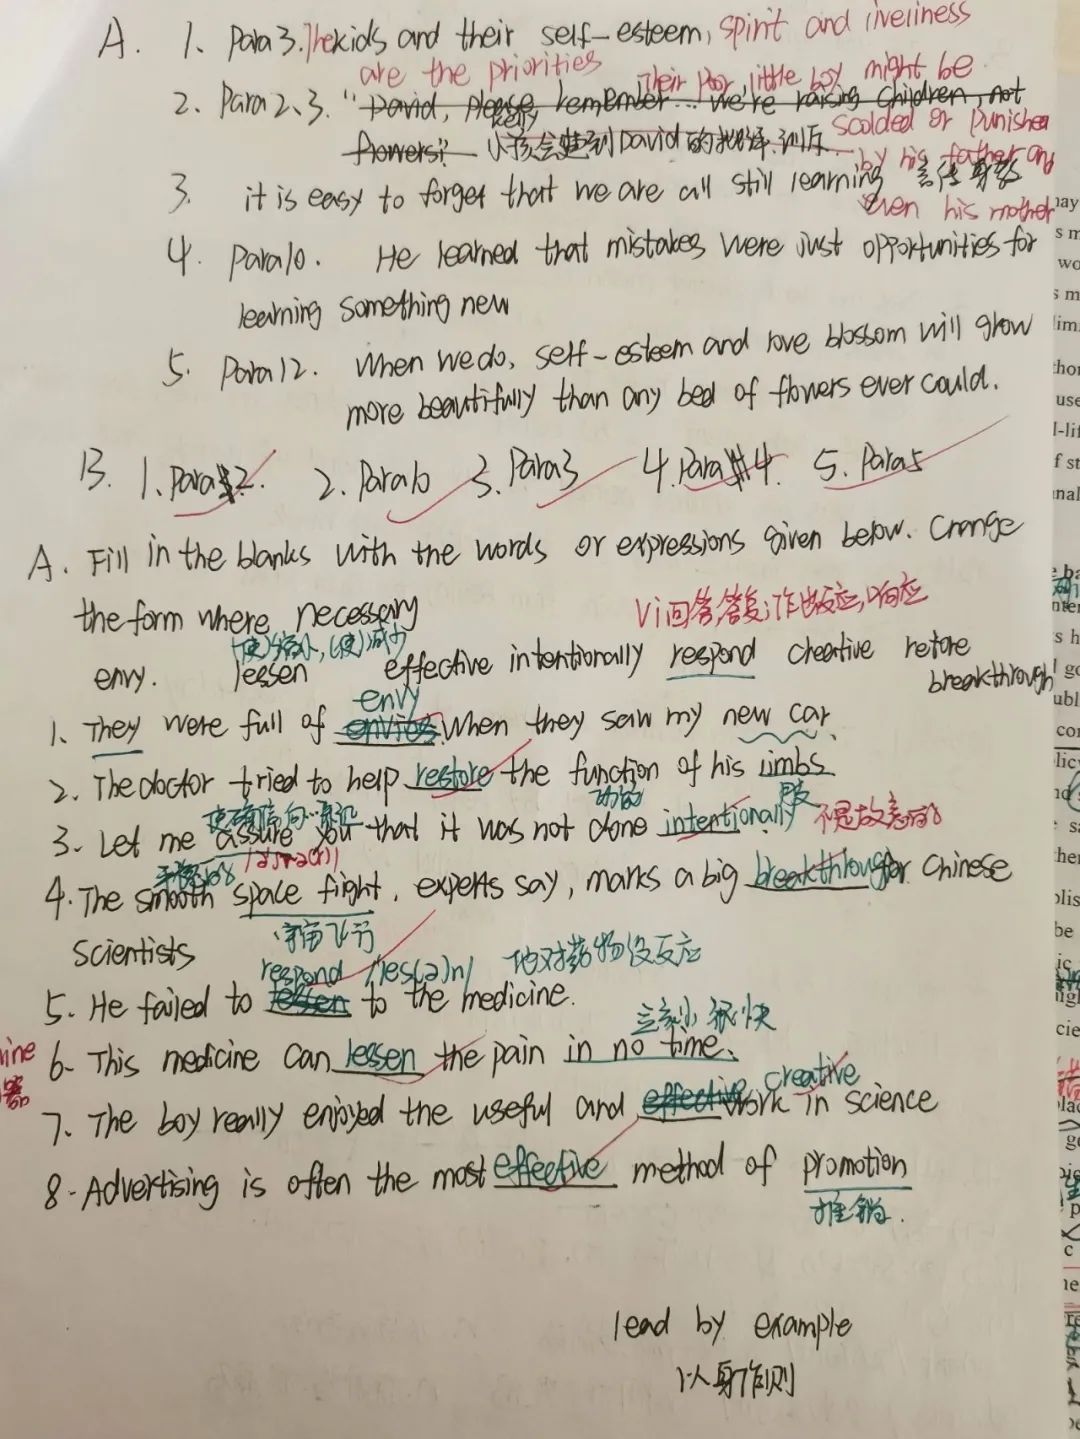 A. 1、Para3. The kids and their self-esteem, spirit and liveliness
are the priorities
2、Para2、3. "David, please remember... we're raising children, not
Their poor little boy might be
flowers? Kelly 小孩会遭到David的批评、训斥
scolded or punished
by his father and
even his mother
3. it is easy to forget that we are all still learning 言传身教
4. Para10. He learned that mistakes were just opportunities for
learning something new
5. Para12. When we do, self-esteem and rove blossom will grow
more beautifully than any bed of flowers ever could.
B. 1、Para2. 2、Para10 3、Para3 4.Para4. 5. Para5
A. Fill in the blanks with the words or expressions given below. Change
the form where necessary
(使)缩小,(使)减少 Vi回答,答复;作出反应,响应
envy. lessen effective intentionally respond creative retore
breakthrough
envy
1、They were full of envies when they saw my new car.
2. The doctor tried to help restore the function of his limbs
功能 肢
使确信向…保证
3. Let me assure you that it was not done intentionally 不是故意的
平稳的
4. The smooth space flight, experts say, marks a big breakthrough for Chinese
宇宙飞行
scientists
respond /'les(ə)n/ 他对药物没反应
5. He failed to lessen to the medicine.
立刻 很快
6- This medicine can lessen the pain in no time.
7. The boy really enjoyed the useful and effective creative work in science
8-Advertising is often the most effective method of promotion
推销.
lead by example
以身作则